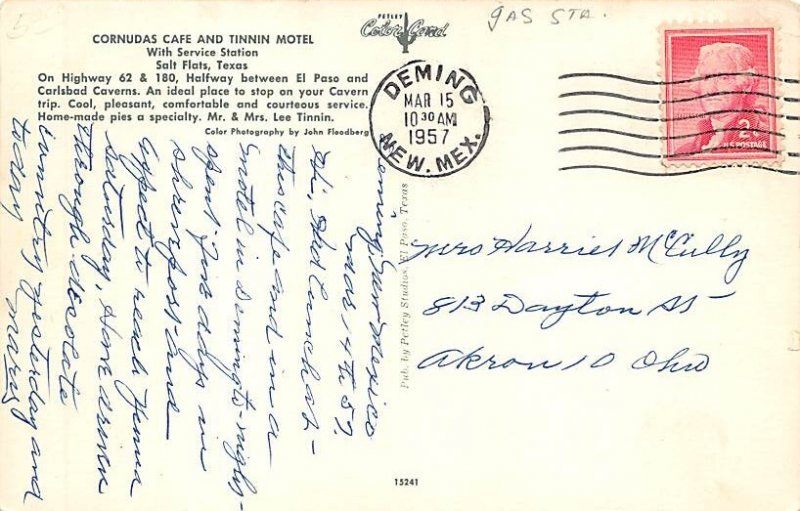 5-
GAS STA.
CORNUDAS CAFE AND TINNIN MOTEL
With Service Station
Salt Flats, Texas
On Highway 62 & 180, Halfway between El Paso and
Carlsbad Caverns. An ideal place to stop on your Cavern
trip. Cool, pleasant, comfortable and courteous service.
Home-made pies a specialty. Mr. & Mrs. Lee Tinnin.
Color Photography by John Floodberg
PETLEY
Color Card
DEMING
MAR 15
10 30 AM
1957
NEW. MEX.
2¢
U.S. POSTAGE
Deming, New Mexico
Mar 14th 57.
Hi, Had lunch at -
this cafe and in a
motel in Deming to-night-
spent five days in
shreveport and
expect to reach
Saturday, Have driven
through desolate
country yesterday and
today
Pub. by Petley Studios, El Paso, Texas
Mrs Harriet McCully
813 Dayton St
Akron 10 Ohio
15241